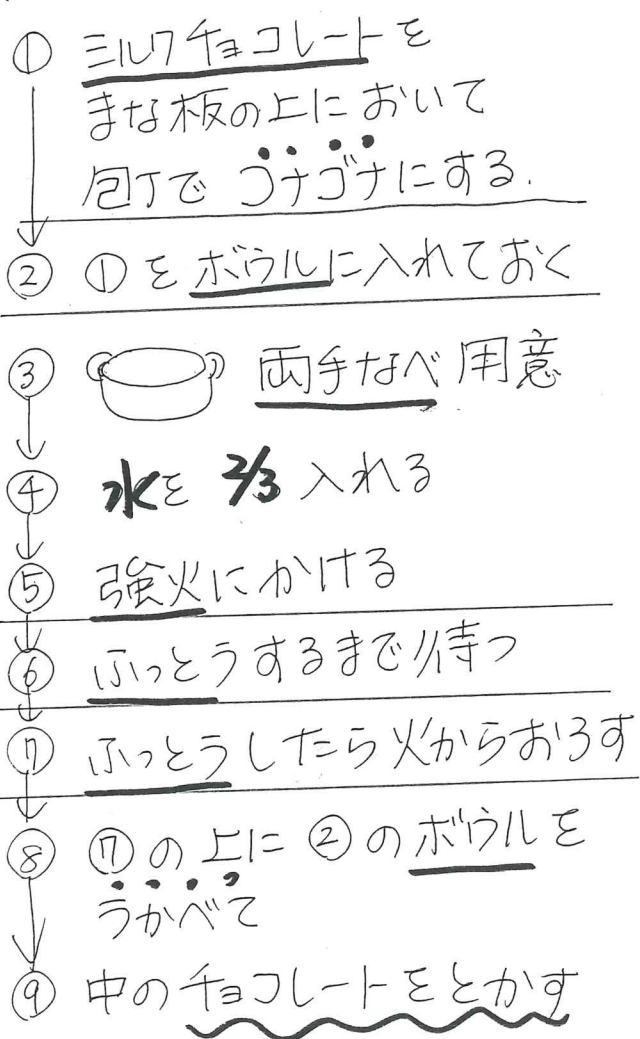 ① ミルクチョコレートを
まな板の上において
包丁で コナゴナにする.
② ①をボウルに入れておく
③ 両手なべ 用意
④ 水を 2/3 入れる
⑤ 強火にかける
⑥ ふっとうするまで待つ
⑦ ふっとうしたら火からおろす
⑧ ⑦の上に②のボウルを
うかべて
⑨ 中のチョコレートをとかす